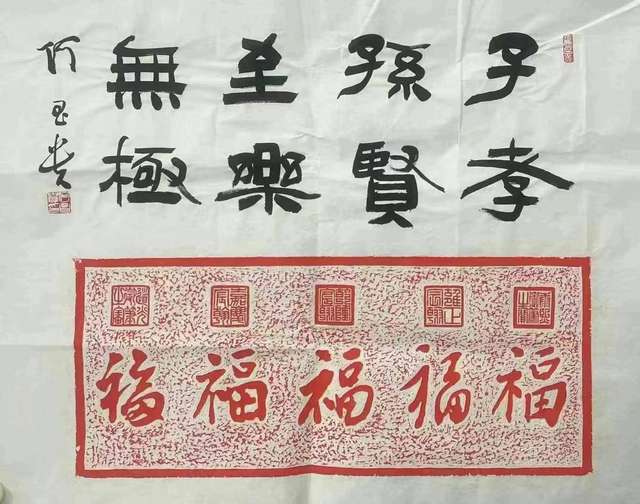 子孝
孫賢
至樂
無極
福福福福福